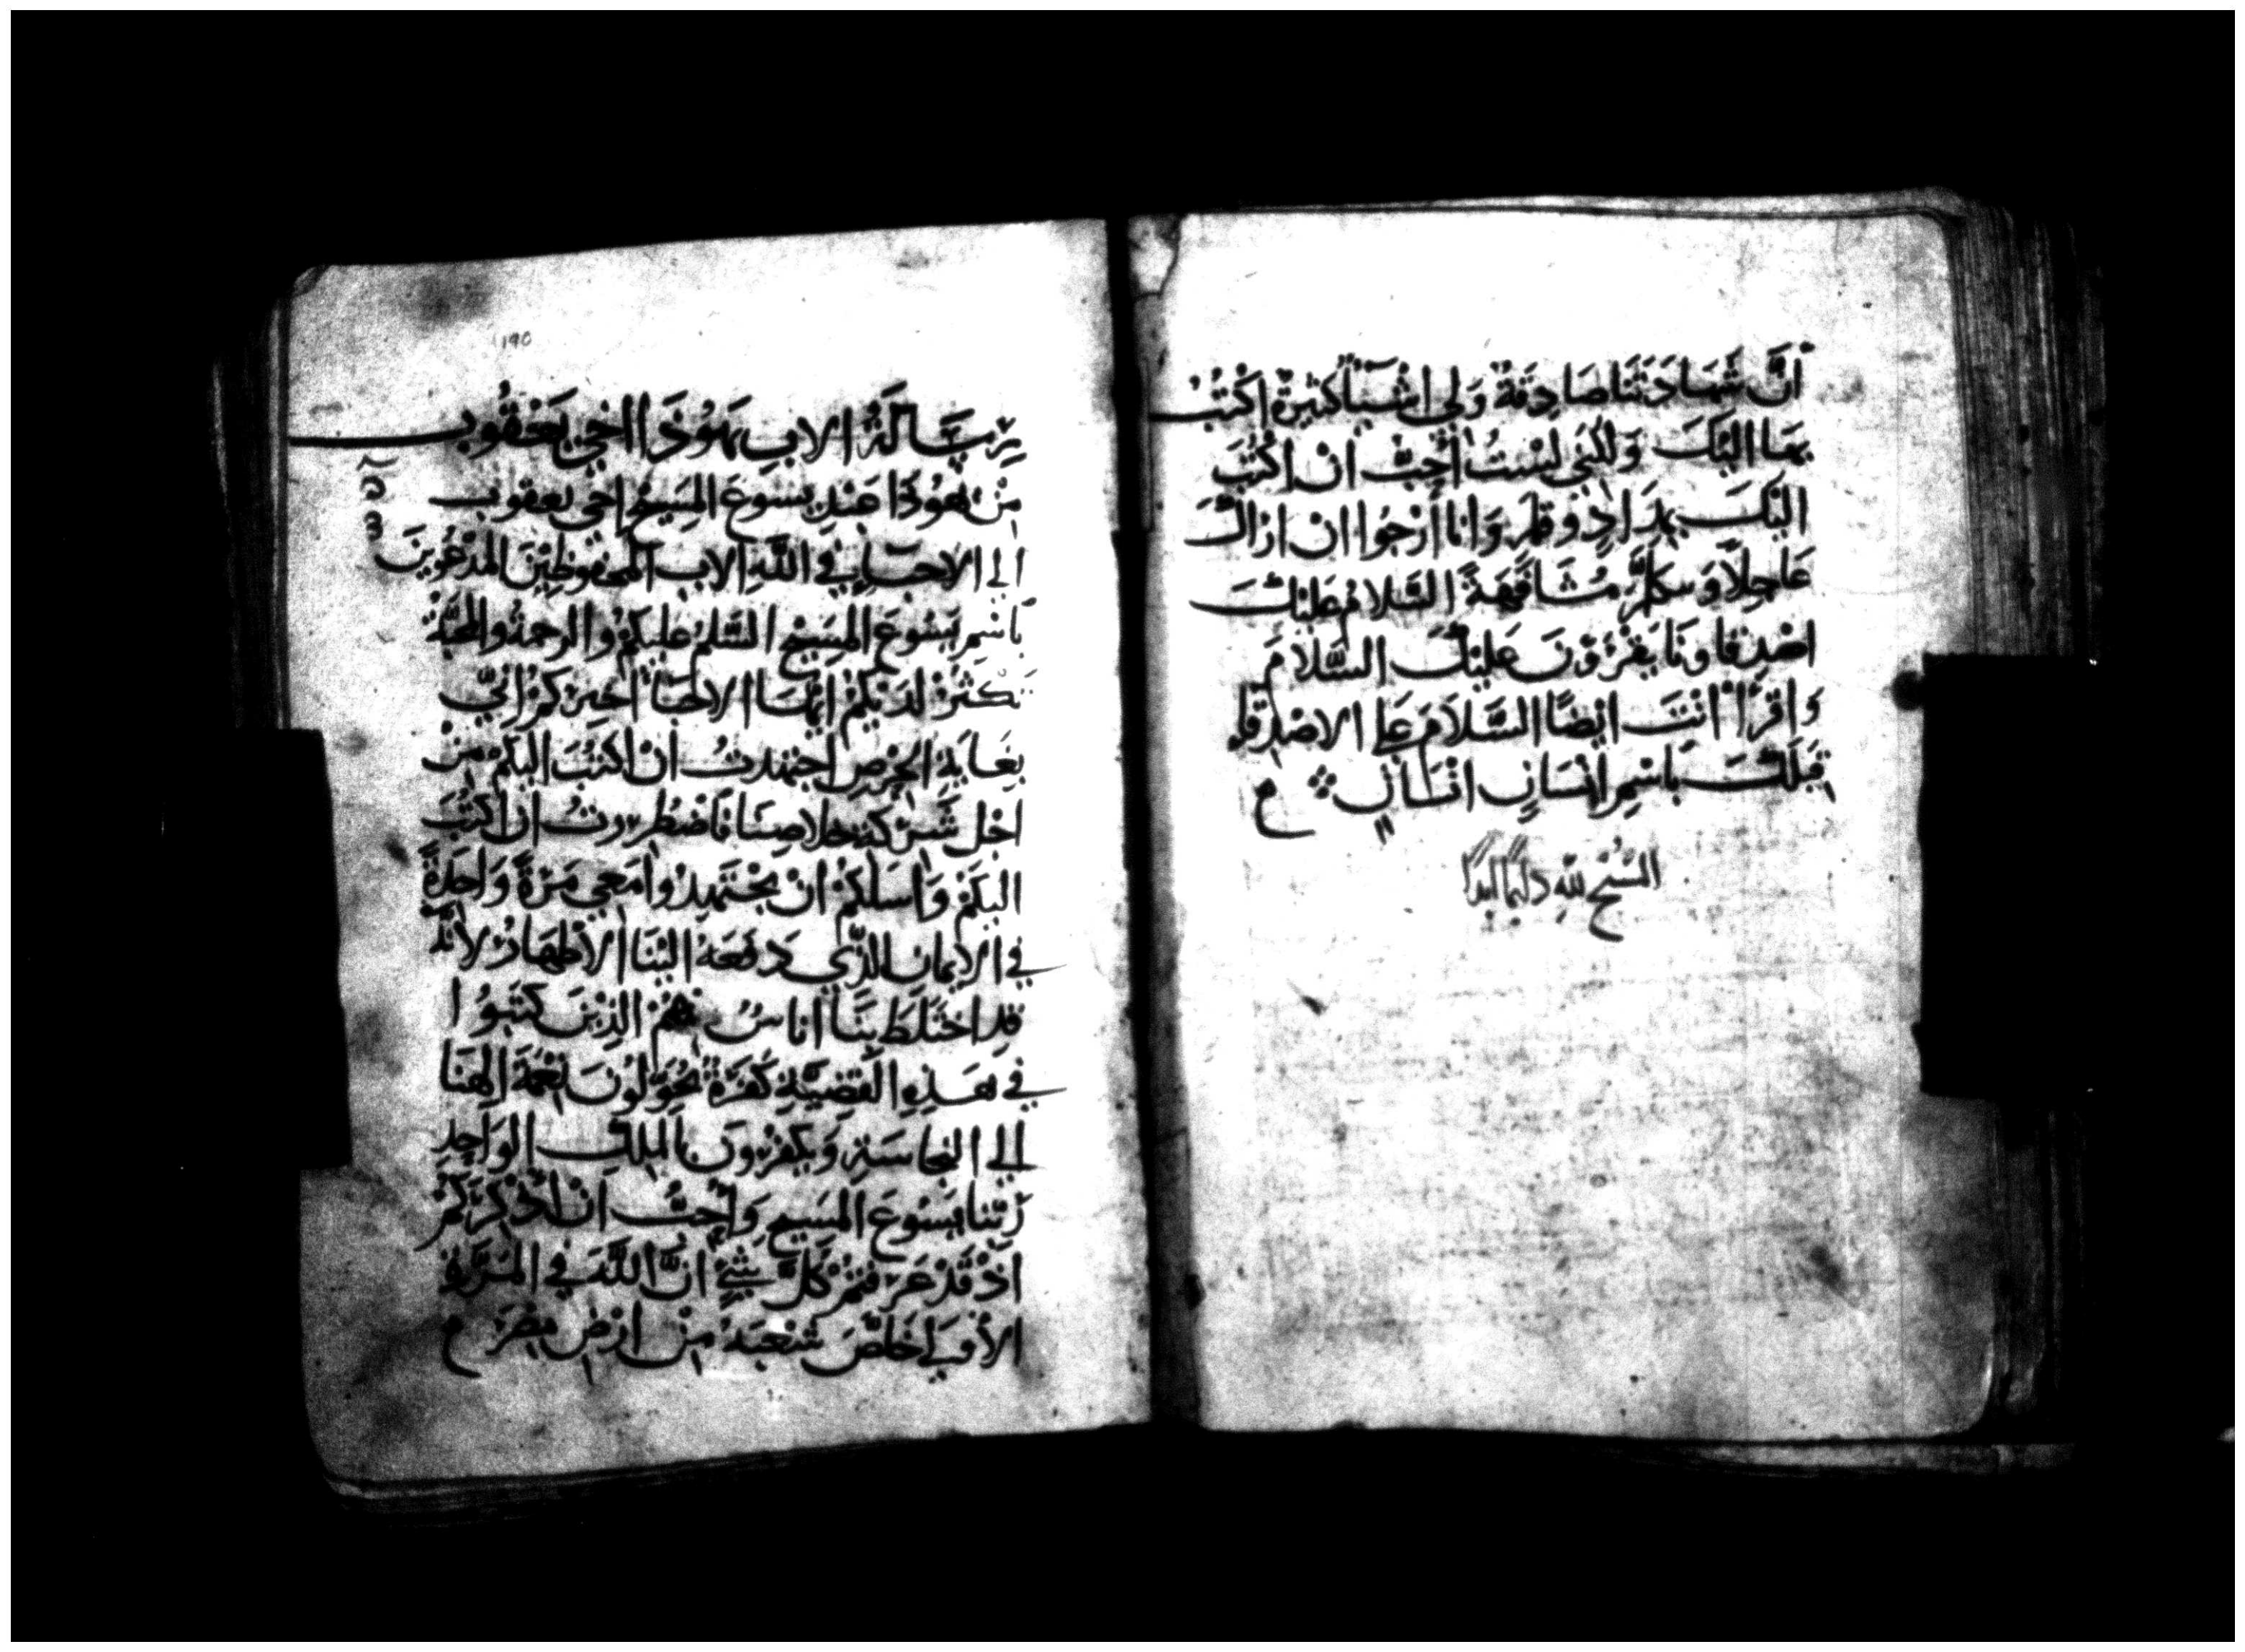 انَّ شَهَادَتَنَا صَادِقَةٌ وَلِي اشْيَآ كَثِيرَةٌ اكْتُبُ
بِهَا الَيْكَ وَلَكِنِّي لَسْتُ أُحِبُّ انْ اكْتُبَ
الَيْكَ بِمِدَادٍ وَقَلَمٍ وَانَا أَرْجُوا ان اراكَ
عَاجِلاً وَنتكلَّمُ مُشَافَهَةً السَّلامُ عَلَيْكَ
اصْدِقَاونَا يَقْرَوونَ عَلَيْكَ السَّلَامَ
وَاقْرَا انْتَ ايْضًا السَّلَامَ عَلي الاصْدِقَاءِ
قِبَلَكَ بَاسْمِ انْسَانٍ انْسَانٍ ۞ م
السُّبح لله دايمًا ابدًا
190
رِسَالَةُ الابِ يَهُوذَا اخي يَعْقُوب
مِنْ يَهُوذَا عَبْدِ يَسُوعَ المَسِيحِ اخي يعقوب
الي الاحبَاءِ في اللَّهِ الاب المحفوظِيْنَ المدْعُوينَ
بَاسْمِ يَسُوعَ المَسِيحِ السَّلمُ عليكمْ والرحمةُ والمحبَّةُ
تَكثرُ لَدَيكُمْ ايُّهَا الاحبَّا اخبركمْ انِّي
بِغَايَةِ الحِرْصِ اجْتهدتُ انْ اكتُبَ اليكمْ مِنْ
اجْل شَركة خلاصِنَا فَاضْطُررتُ ان اكتبَ
اليكمْ وَاسَلكمْ انْ تجْتَهِدُوا مَعِي مَرَةً وَاحِدَةً
في الايمان الذَّي دَفَعَهُ الَيْنَا الأطْهَارُ لأنَّه
قد اخْتَلَطَ بِنَا اناسٌ هُمُ الذِيْنَ كتِبُوا
في هَذِهِ القَضِيَّةِ كَفَرَةٌ يُحَوِّلُونَ نِعْمَةَ الهَنَا
الي النجاسَةِ وَيكفرُونَ بالمَلِكِ الوَاحِدِ
رَبّنا يَسُوعَ المَسِيحِ وَاُحِبُّ انْ اُذكِّرَكمْ
اذْ قَدْ عَرَفْتُمْ كُلَّ شَيْءٍ انَّ اللَّهَ في المَرَّةِ
الأولي خَلَّصَ شَعْبَهُ مِنْ ارْضِ مِصْرَ م